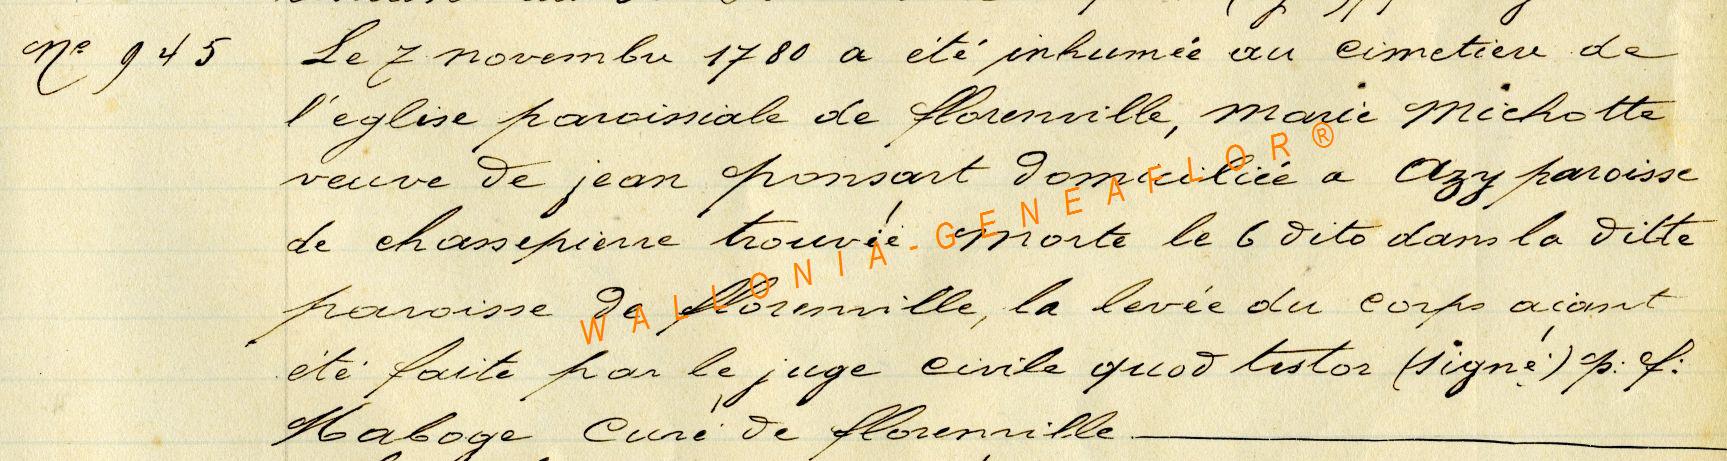 Nº 945 Le 7 novembre 1780 a été inhumée au cimetiere de
l'eglise paroissiale de florenville, Marie Michotte
veuve de jean ponsart domiciliée a Azy paroisse
de chassepierre trouvée morte le 6 dito dans la ditte
paroisse de florenville, la levée du corps aiant
été faite par le juge civile quod testor (signé) p: f:
Haboge Curé de florenville
WALLONIA-GENEAFLOR®